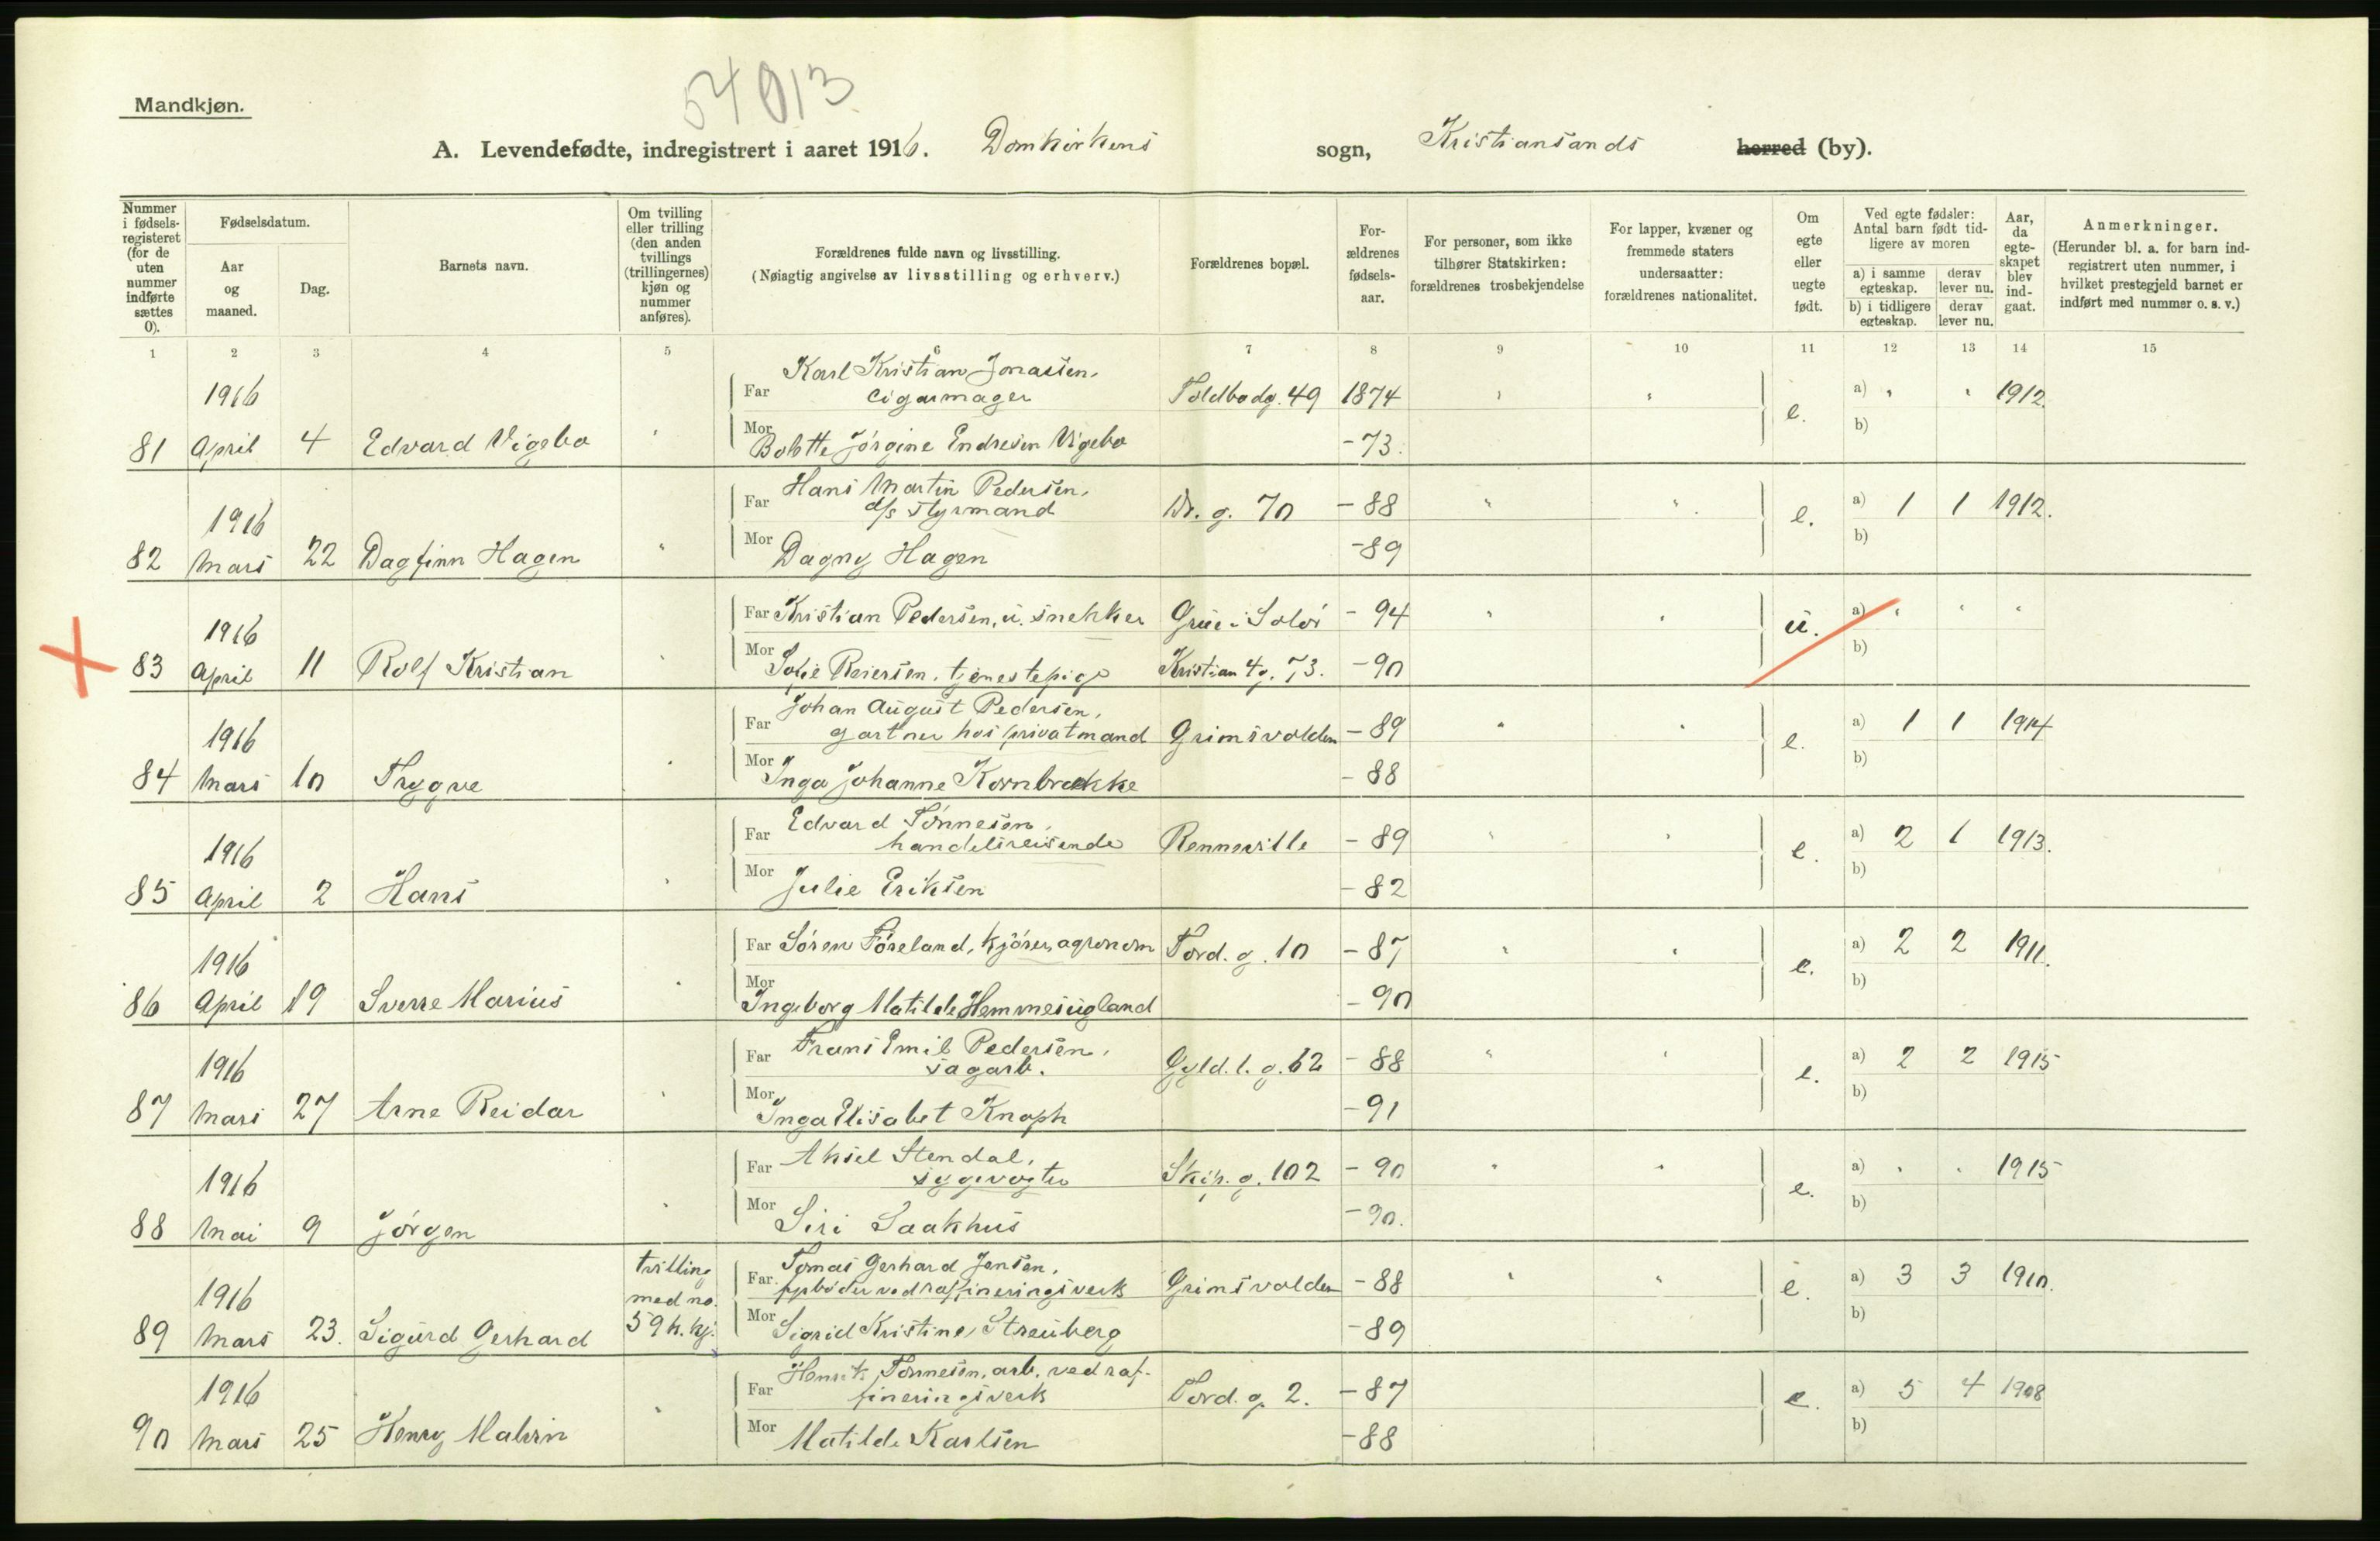 54013
Mandkjøn.
A. Levendefødte, indregistrert i aaret 1916. Domkirkens sogn, Kristiansands herred (by).
Nummer i fødselsregisteret (for de uten nummer indførte sættes 0).
Fødselsdatum.
Aar og maaned.
Dag.
Barnets navn.
Om tvilling eller trilling (den anden tvillings (trillingernes) kjøn og nummer anføres).
Forældrenes fulde navn og livsstilling.
(Nøiagtig angivelse av livsstilling og erhverv.)
Forældrenes bopæl.
Forældrenes fødselsaar.
For personer, som ikke tilhører Statskirken: forældrenes trosbekjendelse
For lapper, kvæner og fremmede staters undersaatter: forældrenes nationalitet.
Om egte eller uegte født.
Ved egte fødsler: Antal barn født tidligere av moren
a) i samme egteskap. derav lever nu.
b) i tidligere egteskap. derav lever nu.
Aar, da egteskapet blev indgaat.
Anmerkninger.
(Herunder bl. a. for barn indregistrert uten nummer, i hvilket prestegjeld barnet er indført med nummer o. s. v.)
1 2 3 4 5 6 7 8 9 10 11 12 13 14 15
Far Karl Kristian Jonassen,
1916 cigarmager Toldbodg. 49 1874 " " e. a) " " 1912.
81 April 4 Edvard Vigebo " Mor Bolette Jörgine Endresen Vigebo -73. b)
Far Hans Martin Pedersen,
1916 d/s styrmand Dr. g. 70 -88 " " e. a) 1 1 1912.
82 Mars 22 Dagfinn Hagen " Mor Dagny Hagen -89 b)
1916 Far Kristian Pedersen, u. snekker Grue i Solör -94 " " u. a) " " "
83 April 11 Rolf Kristian " Mor Sofie Reiersen, tjenestepige Kristian 4 g. 73. -90 b)
Far Johan August Pedersen,
1916 gartner hos privatmand Grimsvolden -89 " " e. a) 1 1 1914
84 Mars 10 Trygve " Mor Inga Johanne Kornbrekke -88 b)
Far Edvard Tönnesen,
1916 handelsreisende Renneville -89 " " e. a) 2 1 1913.
85 April 2 Hans " Mor Julie Eriksen -82 b)
1916 Far Sören Föreland, kjörer, agronom Tord. g. 10 -87 " " e. a) 2 2 1911.
86 April 19 Sverre Marius " Mor Ingeborg Matilde Hemmesugland -90 b)
Far Frans Emil Pedersen,
1916 sagarb. Gyld. l. g. 62 -88 " " e. a) 2 2 1915
87 Mars 27 Arne Reidar " Mor Inga Elisabet Knoph -91 b)
Far Aksel Stendal,
1916 sygevogter Skip. g. 102 -90 " " e. a) " " 1915
88 Mai 9 Jörgen " Mor Siri Saakhus -90. b)
tvilling Far Tomas Gerhard Jensen,
1916 med no. ved raffineringsverk Grimsvolden -88 " " e. a) 3 3 1910.
89 Mars 23. Sigurd Gerhard 59 k. kj. Mor Sigrid Kristine Streuberg -89 b)
Far Henrik Tönnesen, arb. ved raf-
1916 fineringsverk Tord. g. 2. -87 e. a) 5 4 1908
90 Mars 25 Henry Malvin " Mor Matilde Karlsen -88 b)